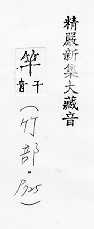 精嚴新集大藏音
竿
干音
(竹部.P.725)